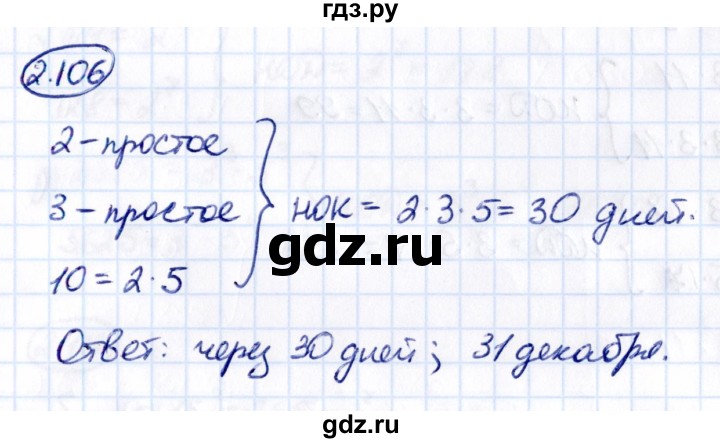 гдз.ру
2.106
2 - простое
3 - простое
10 = 2·5
НОК = 2·3·5 = 30 дней.
gdz.ru
Ответ: через 30 дней; 31 декабря.
gdz.ru